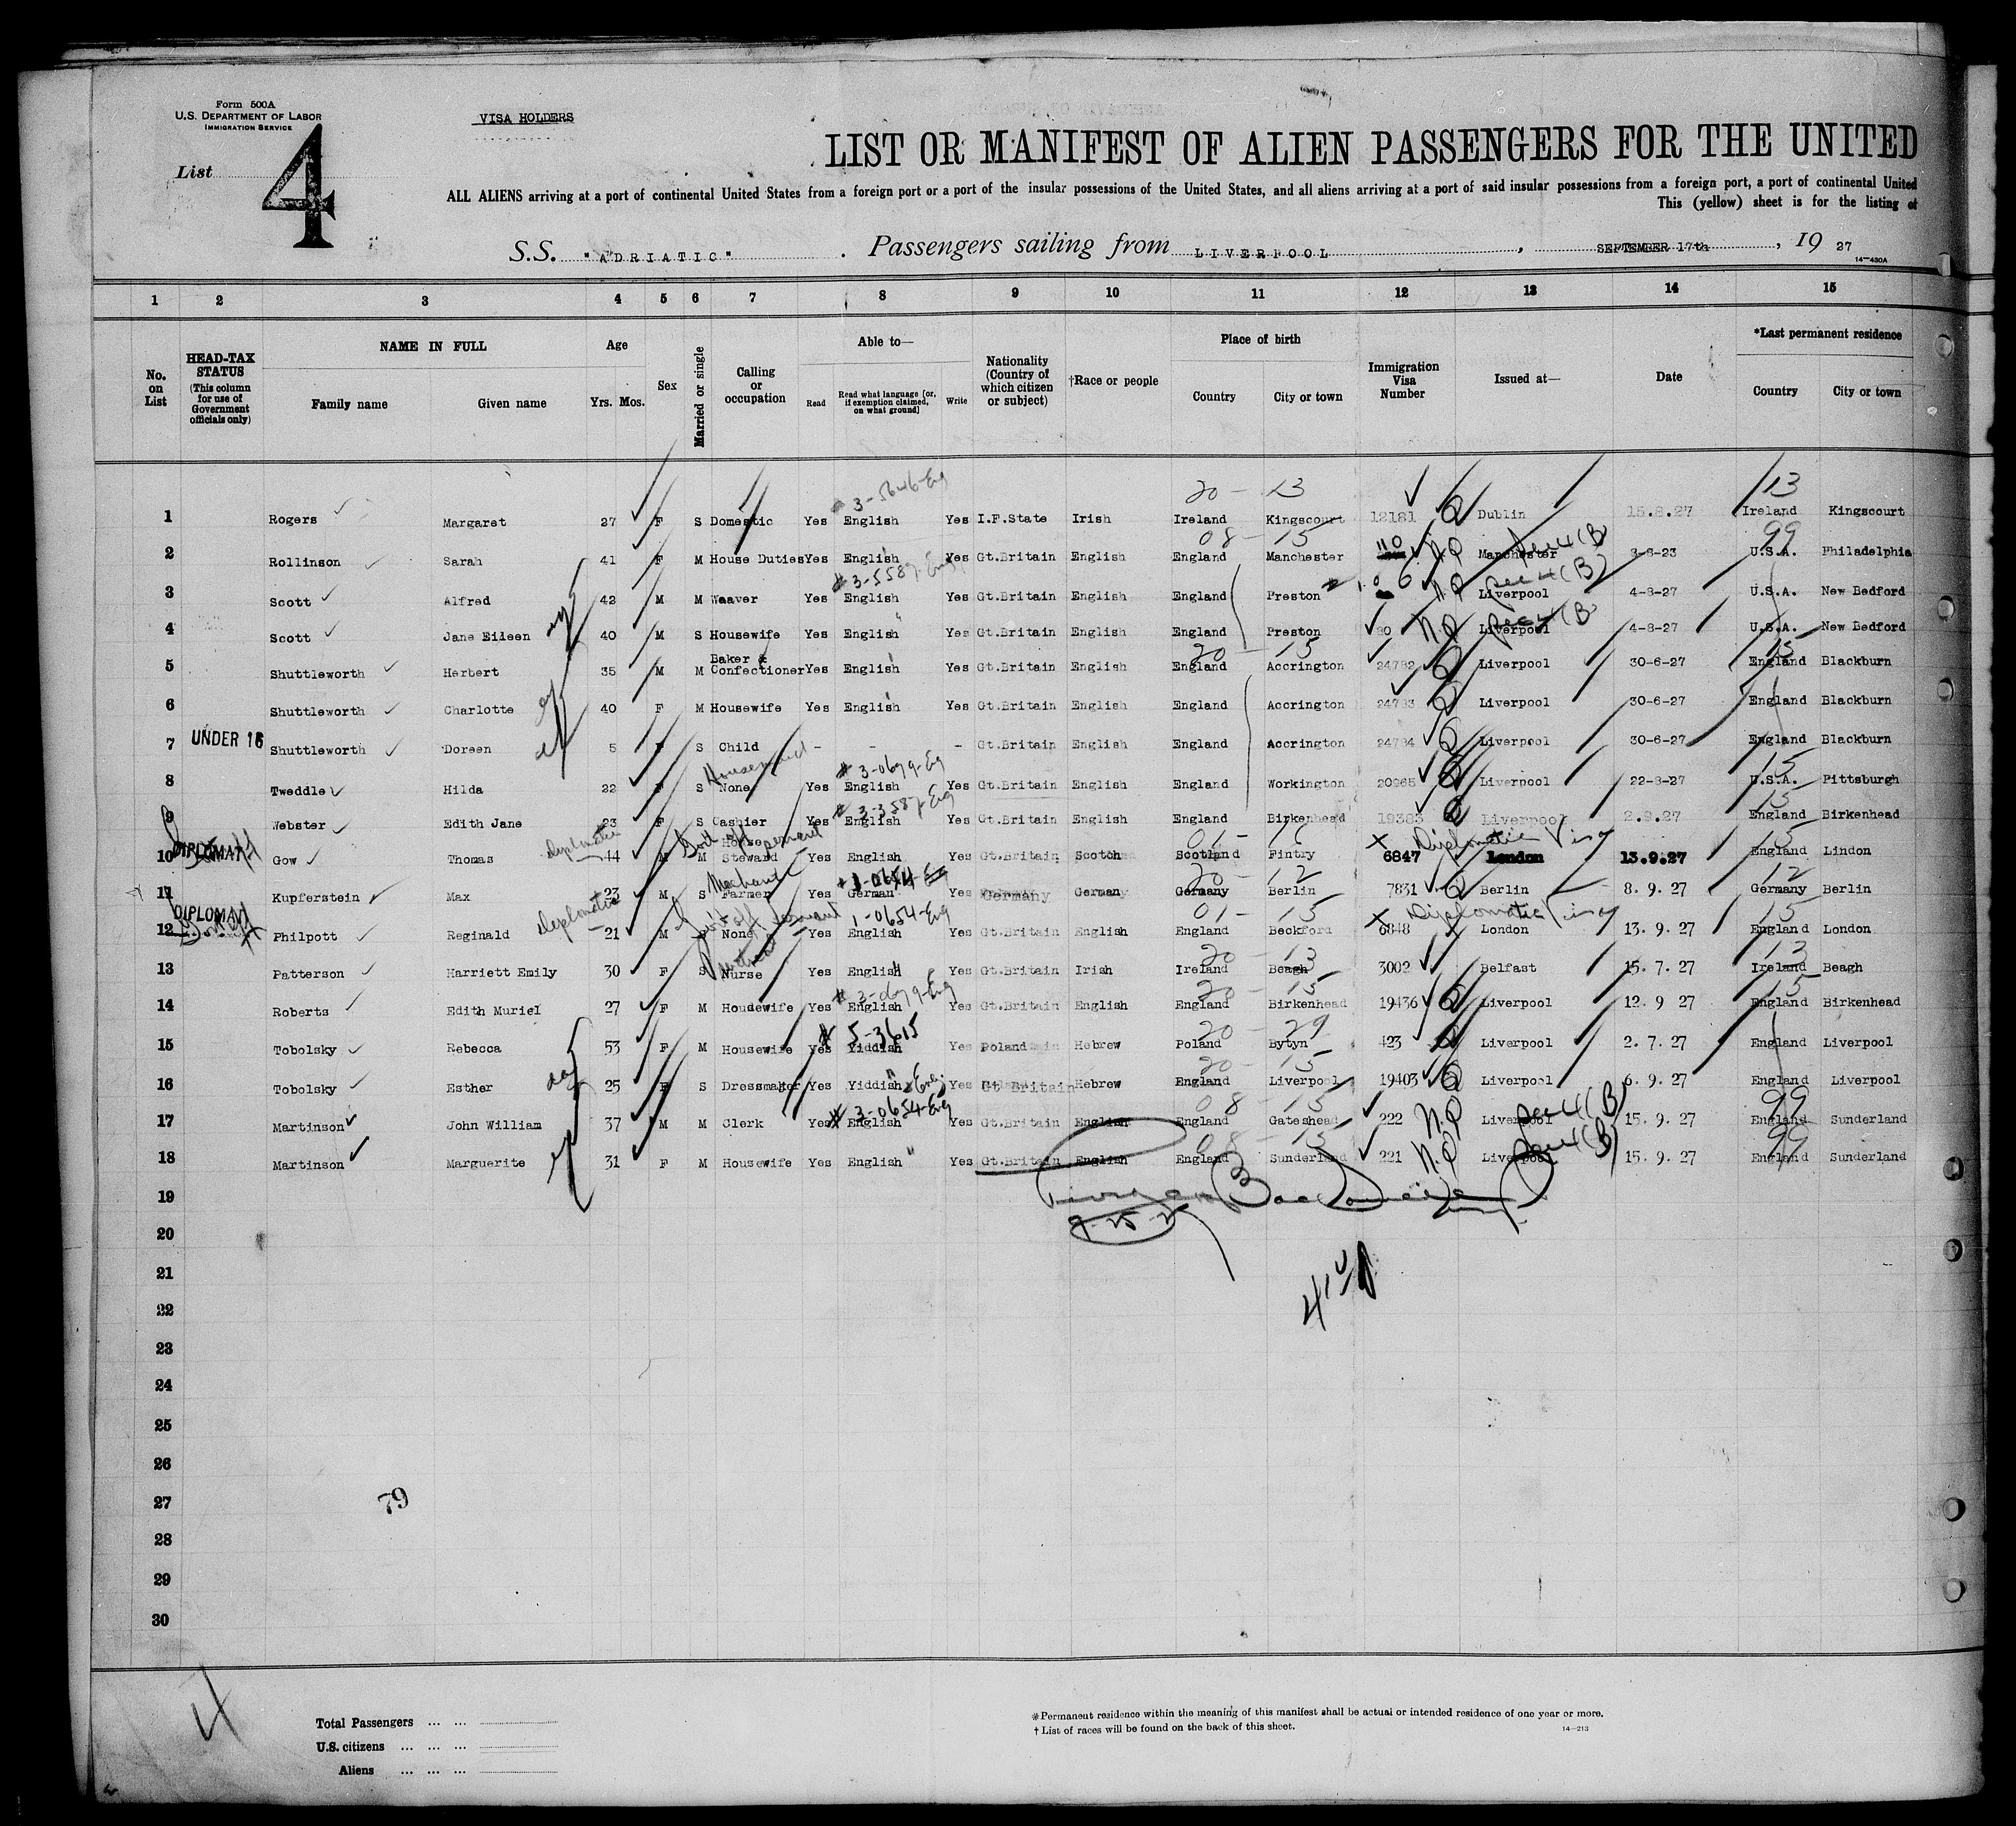 Form 500A
U.S. DEPARTMENT OF LABOR
IMMIGRATION SERVICE
VISA HOLDERS
List 4
LIST OR MANIFEST OF ALIEN PASSENGERS FOR THE UNITED
ALL ALIENS arriving at a port of continental United States from a foreign port or a port of the insular possessions of the United States, and all aliens arriving at a port of said insular possessions from a foreign port, a port of continental United
This (yellow) sheet is for the listing of
S.S. "ADRIATIC" . Passengers sailing from LIVERPOOL , SEPTEMBER 17th , 19 27
14-430A
1 2 3 4 5 6 7 8 9 10 11 12 13 14 15
No. on List
HEAD-TAX STATUS (This column for use of Government officials only)
NAME IN FULL
Family name Given name
Age
Yrs. Mos.
Sex
Married or single
Calling or occupation
Able to—
Read Read what language [or, if exemption claimed, on what ground] Write
Nationality (Country of which citizen or subject)
†Race or people
Place of birth
Country City or town
Immigration Visa Number
Issued at—
Date
*Last permanent residence
Country City or town
3-5646-Eng 20 - 13 13
1 Rogers Margaret 27 F S Domestic Yes English Yes I.F.State Irish Ireland Kingscourt 12181 Dublin 15.8.27 Ireland Kingscourt
08 - 15 99
2 Rollinson Sarah 41 F M House Duties Yes English Yes Gt.Britain English England Manchester 110 N.P Manchester 3-8-23 U.S.A. Philadelphia
# 3-5587-Eng
3 Scott Alfred 42 M M Waaver Yes English Yes Gt.Britain English England Preston N.P Liverpool see 4(B) 4-8-27 U.S.A. New Bedford
4 Scott Jane Eileen 40 M S Housewife Yes English Yes Gt.Britain English England Preston N.P Liverpool see 4(B) 4-8-27 U.S.A. New Bedford
20 - 15 15
5 Shuttleworth Herbert 35 M M Baker & Confectioner Yes English Yes Gt.Britain English England Accrington 24782 Liverpool 30-6-27 England Blackburn
6 Shuttleworth Charlotte 40 F M Housewife Yes English Yes Gt.Britain English England Accrington 24783 Liverpool 30-6-27 England Blackburn
7 UNDER 16 Shuttleworth Doreen 5 F S Child - - - Gt.Britain English England Accrington 24784 Liverpool 30-6-27 England Blackburn
Housemaid # 3-0679-Eng 15
8 Tweddle Hilda 22 F S None Yes English Yes Gt.Britain English England Workington 20965 Liverpool 22-8-27 U.S.A. Pittsburgh
# 3-3587-Eng 15
9 Webster Edith Jane 23 F S Cashier Yes English Yes Gt.Britain English England Birkenhead 19383 Liverpool 2.9.27 England Birkenhead
Diplomatic 01 - Diplomatic Visa 15
10 DIPLOMAT Gow Thomas 44 M M House Steward Yes English Yes Gt.Britain Scotch Scotland Fintry 6847 London 13.9.27 England Lindon
Mechanic 1-0654-Eng 20 - 12 12
11 Kupferstein Max 23 M S Farmer Yes German Yes Germany German Germany Berlin 7831 Berlin 8. 9. 27 Germany Berlin
Diplomatic 1-0654-Eng 01 - 15 Diplomatic Visa 15
12 DIPLOMAT Philpott Reginald 21 M None Yes English Yes Gt.Britain English England Beckford 6848 London 13. 9. 27 England London
20 - 13 13
13 Patterson Harriett Emily 30 F S Nurse Yes English Yes Gt.Britain Irish Ireland Beagh 3002 Belfast 15. 7. 27 Ireland Beagh
# 3-0679-Eng 20 - 15 15
14 Roberts Edith Muriel 27 F M Houdewife Yes English Yes Gt.Britain English England Birkenhead 19436 Liverpool 12. 9 27 England Birkenhead
# 5-3615 20 - 29
15 Tobolsky Rebecca 53 F M Housewife Yes Yiddish Yes Poland Hebrew Poland Bytyn 423 Liverpool 2. 7. 27 England Liverpool
20 - 15
16 Tobolsky Esther 25 F S Dressmaker Yes Yiddish & Eng. Yes Gt Britain Hebrew England Liverpool 19403 Liverpool 6. 9. 27 England Liverpool
# 3-0654-Eng 08 - 15 99
17 Martinson John William 37 M M Clerk Yes English Yes Gt.Britain English England Gateshead 222 N.P Liverpool see 4(B) 15. 9. 27 England Sunderland
08 - 15 99
18 Martinson Marguerite 31 F M Housewife Yes English Yes Gt.Britain English England Sunderland 221 N.P Liverpool see 4(B) 15. 9. 27 England Sunderland
19
20
21
22
23
24
25
26
27
79
28
29
30
4
Total Passengers ... ...
U.S. citizens ... ... ...
Aliens ... ... ...
*Permanent residence within the meaning of this manifest shall be actual or intended residence of one year or more.
† List of races will be found on the back of this sheet. 14-213